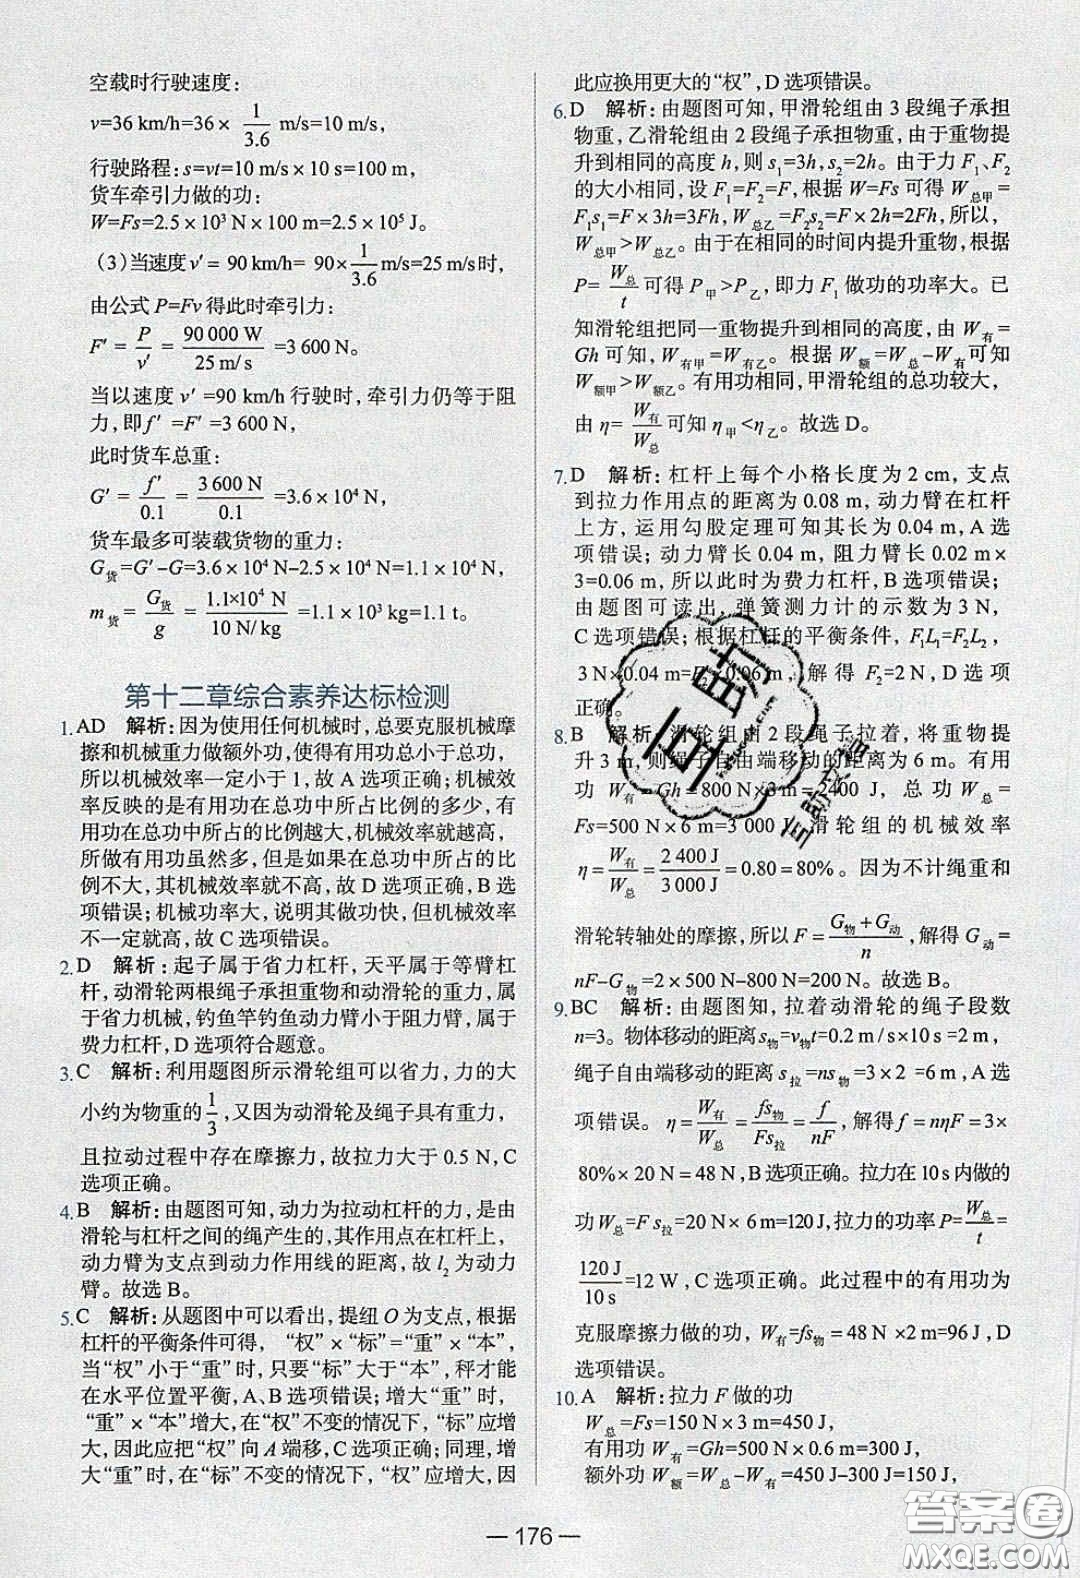 空载时行驶速度:
v=36 km/h=36× 1/3.6 m/s=10 m/s,
行驶路程:s=vt=10 m/s×10 s=100 m,
货车牵引力做的功:
W=Fs=2.5×10³ N×100 m=2.5×10⁵ J。
(3)当速度v′=90 km/h=90×1/3.6=25 m/s时,
由公式P=Fv得此时牵引力:
F′=P/v′=90 000 W/25 m/s=3 600 N。
当以速度v′=90 km/h行驶时,牵引力仍等于阻
力,即f′=F′=3 600 N,
此时货车总重:
G′=f′/0.1=3 600 N/0.1=3.6×10⁴ N,
货车最多可装载货物的重力:
G货=G′-G=3.6×10⁴ N-2.5×10⁴ N=1.1×10⁴ N,
m货=G货/g=1.1×10⁴ N/10 N/kg=1.1×10³ kg=1.1 t。
第十二章综合素养达标检测
1. AD 解析:因为使用任何机械时,总要克服机械摩
擦和机械重力做额外功,使得有用功总小于总功,
所以机械效率一定小于1,故A选项正确;机械效
率反映的是有用功在总功中所占比例的多少,有
用功在总功中所占的比例越大,机械效率就越高,
所做有用功虽然多,但是如果在总功中所占的比
例不大,其机械效率就不高,故D选项正确,B选
项错误;机械功率大,说明其做功快,但机械效率
不一定就高,故C选项错误。
2. D 解析:起子属于省力杠杆,天平属于等臂杠
杆,动滑轮两根绳子承担重物和动滑轮的重力,属
于省力机械,钓鱼竿钓鱼动力臂小于阻力臂,属于
费力杠杆,D选项符合题意。
3. C 解析:利用题图所示滑轮组可以省力,力的大
小约为物重的1/3,又因为动滑轮及绳子具有重力,
且拉动过程中存在摩擦力,故拉力大于0.5 N,C
选项正确。
4. B 解析:由题图可知,动力为拉动杠杆的力,是由
滑轮与杠杆之间的绳产生的,其作用点在杠杆上,
动力臂为支点到动力作用线的距离,故l₂为动力
臂。故选B。
5. C 解析:从题图中可以看出,提纽O为支点,根据
杠杆的平衡条件可得,“权”×“标”=“重”×“本”,
当“权”小于“重”时,只要“标”大于“本”,秤才能
在水平位置平衡,A、B选项错误;增大“重”时,
“重”×“本”增大,在“权”不变的情况下,“标”应增
大,因此应把“权”向A端移,C选项正确;同理,增
大“重”时,在“标”不变的情况下,“权”应增大,因
此应换用更大的“权”,D选项错误。
6. D 解析:由题图可知,甲滑轮组由3段绳子承担
物重,乙滑轮组由2段绳子承担物重,由于重物提
升到相同的高度h,则s₁=3h,s₂=2h。由于力F₁、F₂
的大小相同,设F₁=F₂=F,根据W=Fs可得W总甲=
F₁s₁=F×3h=3Fh,W总乙=F₂s₂=F×2h=2Fh,所以,
W总甲>W总乙。由于在相同的时间内提升重物,根据
P=W总/t可得P甲>P乙,即力F₁做功的功率大。已
知滑轮组把同一重物提升到相同的高度,由W有=
Gh可知,W有甲=W有乙。根据W额=W总-W有可知
W额甲>W额乙。有用功相同,甲滑轮组的总功较大,
由η=W有/W总可知η甲<η乙。故选D。
7. D 解析:杠杆上每个小格长度为2 cm,支点
到拉力作用点的距离为0.08 m,动力臂在杠杆
上方,运用勾股定理可知其长为0.04 m,A选
项错误;动力臂长0.04 m,阻力臂长0.02 m×
3=0.06 m,所以此时为费力杠杆,B选项错误;
由题图可读出,弹簧测力计的示数为3 N,
C选项错误;根据杠杆的平衡条件,F₁L₁=F₂L₂,
3 N×0.04 m=F₂×0.06 m,解得F₂=2 N,D选项
正确。
8. B 解析:滑轮组由2段绳子拉着,将重物提
升3 m,则绳子自由端移动的距离为6 m。有用
功W有=Gh=800 N×3 m=2400 J,总功W总=
Fs=500 N×6 m=3 000 J,滑轮组的机械效率
η=W有/W总=2 400 J/3 000 J=0.80=80%。因为不计绳重和
滑轮转轴处的摩擦,所以F=G物+G动/n,解得G动=
nF-G物=2×500 N-800 N=200 N。故选B。
9. BC 解析:由题图知,拉着动滑轮的绳子段数
n=3。物体移动的距离s物=v物t=0.2 m/s×10 s=2 m,
绳子自由端移动的距离s拉=ns物=3×2=6 m,A选
项错误。η=W有/W总=fs物/Fs拉=f/nF,解得f=nηF=3×
80%×20 N=48 N,B选项正确。拉力在10 s内做的
功W总=Fs拉=20 N×6 m=120 J,拉力的功率P=W总/t=
120 J/10 s=12 W,C选项正确。此过程中的有用功为
克服摩擦力做的功,W有=fs物=48 N×2 m=96 J,D
选项错误。
10. A 解析:拉力F做的功
W总=Fs=150 N×3 m=450 J,
有用功W有=Gh=500 N×0.6 m=300 J,
额外功W额=W总-W有=450 J-300 J=150 J,
— 176 —
答案圈
MXQE.COM